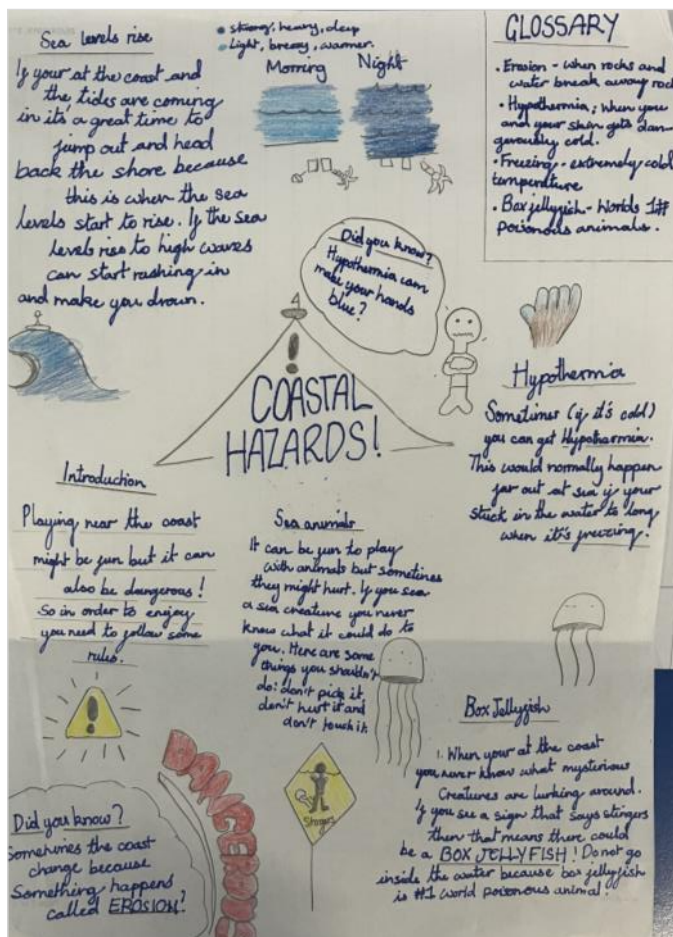 Sea levels rise
If your at the coast and
the tides are coming
in it's a great time to
jump out and head
back the shore because
this is when the sea
levels start to rise. If the sea
levels rise to high waves
can start rashing in
and make you drown.
strong, heavy, deep
Light, breezy, warmer.
Morning
Night
GLOSSARY
• Erosion - when rocks and
water break away rock
• Hypothermia; when you
and your skin gets dan
gerously cold.
• Freezing - extremely cold
temperature
• Box jellyfish - Worlds 1#
poisonous animals.
Did you know?
Hypothermia can
make your hands
blue?
!
COASTAL
HAZARDS!
Hypothermia
Sometimes (if it's cold)
you can get Hypothermia.
This would normally happen
far out at sea if your
stuck in the water to long
when it's freezing.
Introduction
Playing near the coast
might be fun but it can
also be dangerous!
So in order to enjoy
you need to follow some
rules.
!
Sea animals
It can be fun to play
with animals but sometimes
they might hurt. If you sea
a sea creature you never
know what it could do to
you. Here are some
things you shouldn't
do: don't pick it,
don't hurt it and
don't touch it.
Box Jellyfish
1. When your at the coast
you never know what mysterious
Creatures are lurking around.
If you see a sign that says stingers
then that means there could
be a BOX JELLYFISH! Do not go
inside the water because box jellyfish
is #1 world poisonous animal!
Did you know?
Sometimes the coast
change because
Something happens
called EROSION?
DANGEROUS